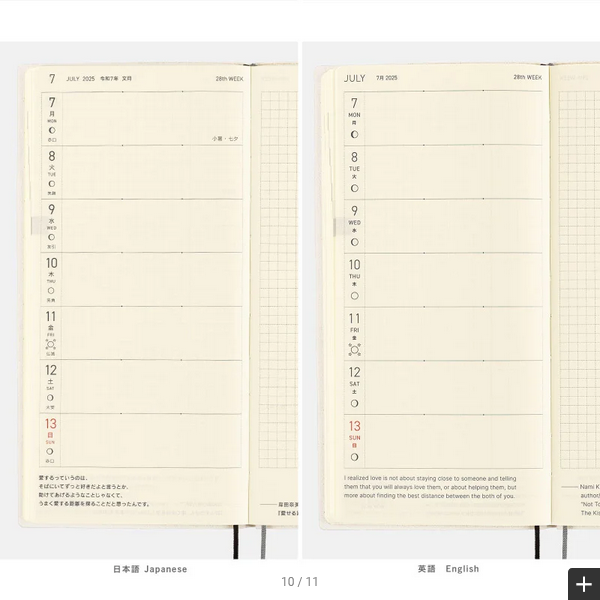 7 JULY 2025 令和7年 文月 28th WEEK
7
月
MON
赤口
小暑・七夕
8
火
TUE
先勝
9
水
WED
友引
10
木
THU
先負
11
金
FRI
仏滅
12
土
SAT
大安
13
日
SUN
赤口
愛するっていうのは、
そばにいてずっと好きだよと言うとか、
助けてあげるようなことじゃなくて、
うまく愛する距離を探ることだと思ったんです。
JULY 7月 2025 28th WEEK
7
MON
月
8
TUE
火
9
WED
水
10
THU
木
11
FRI
金
12
SAT
土
13
SUN
日
I realized love is not about staying close to someone and telling
them that you will always love them, or about helping them, but
more about finding the best distance between the both of you.
Nami K
author
"Not To
The Kis
日本語 Japanese
英語 English
10 / 11